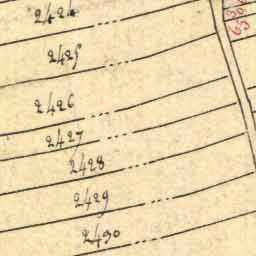 2424
2425
2426
2427
2428
2429
2430